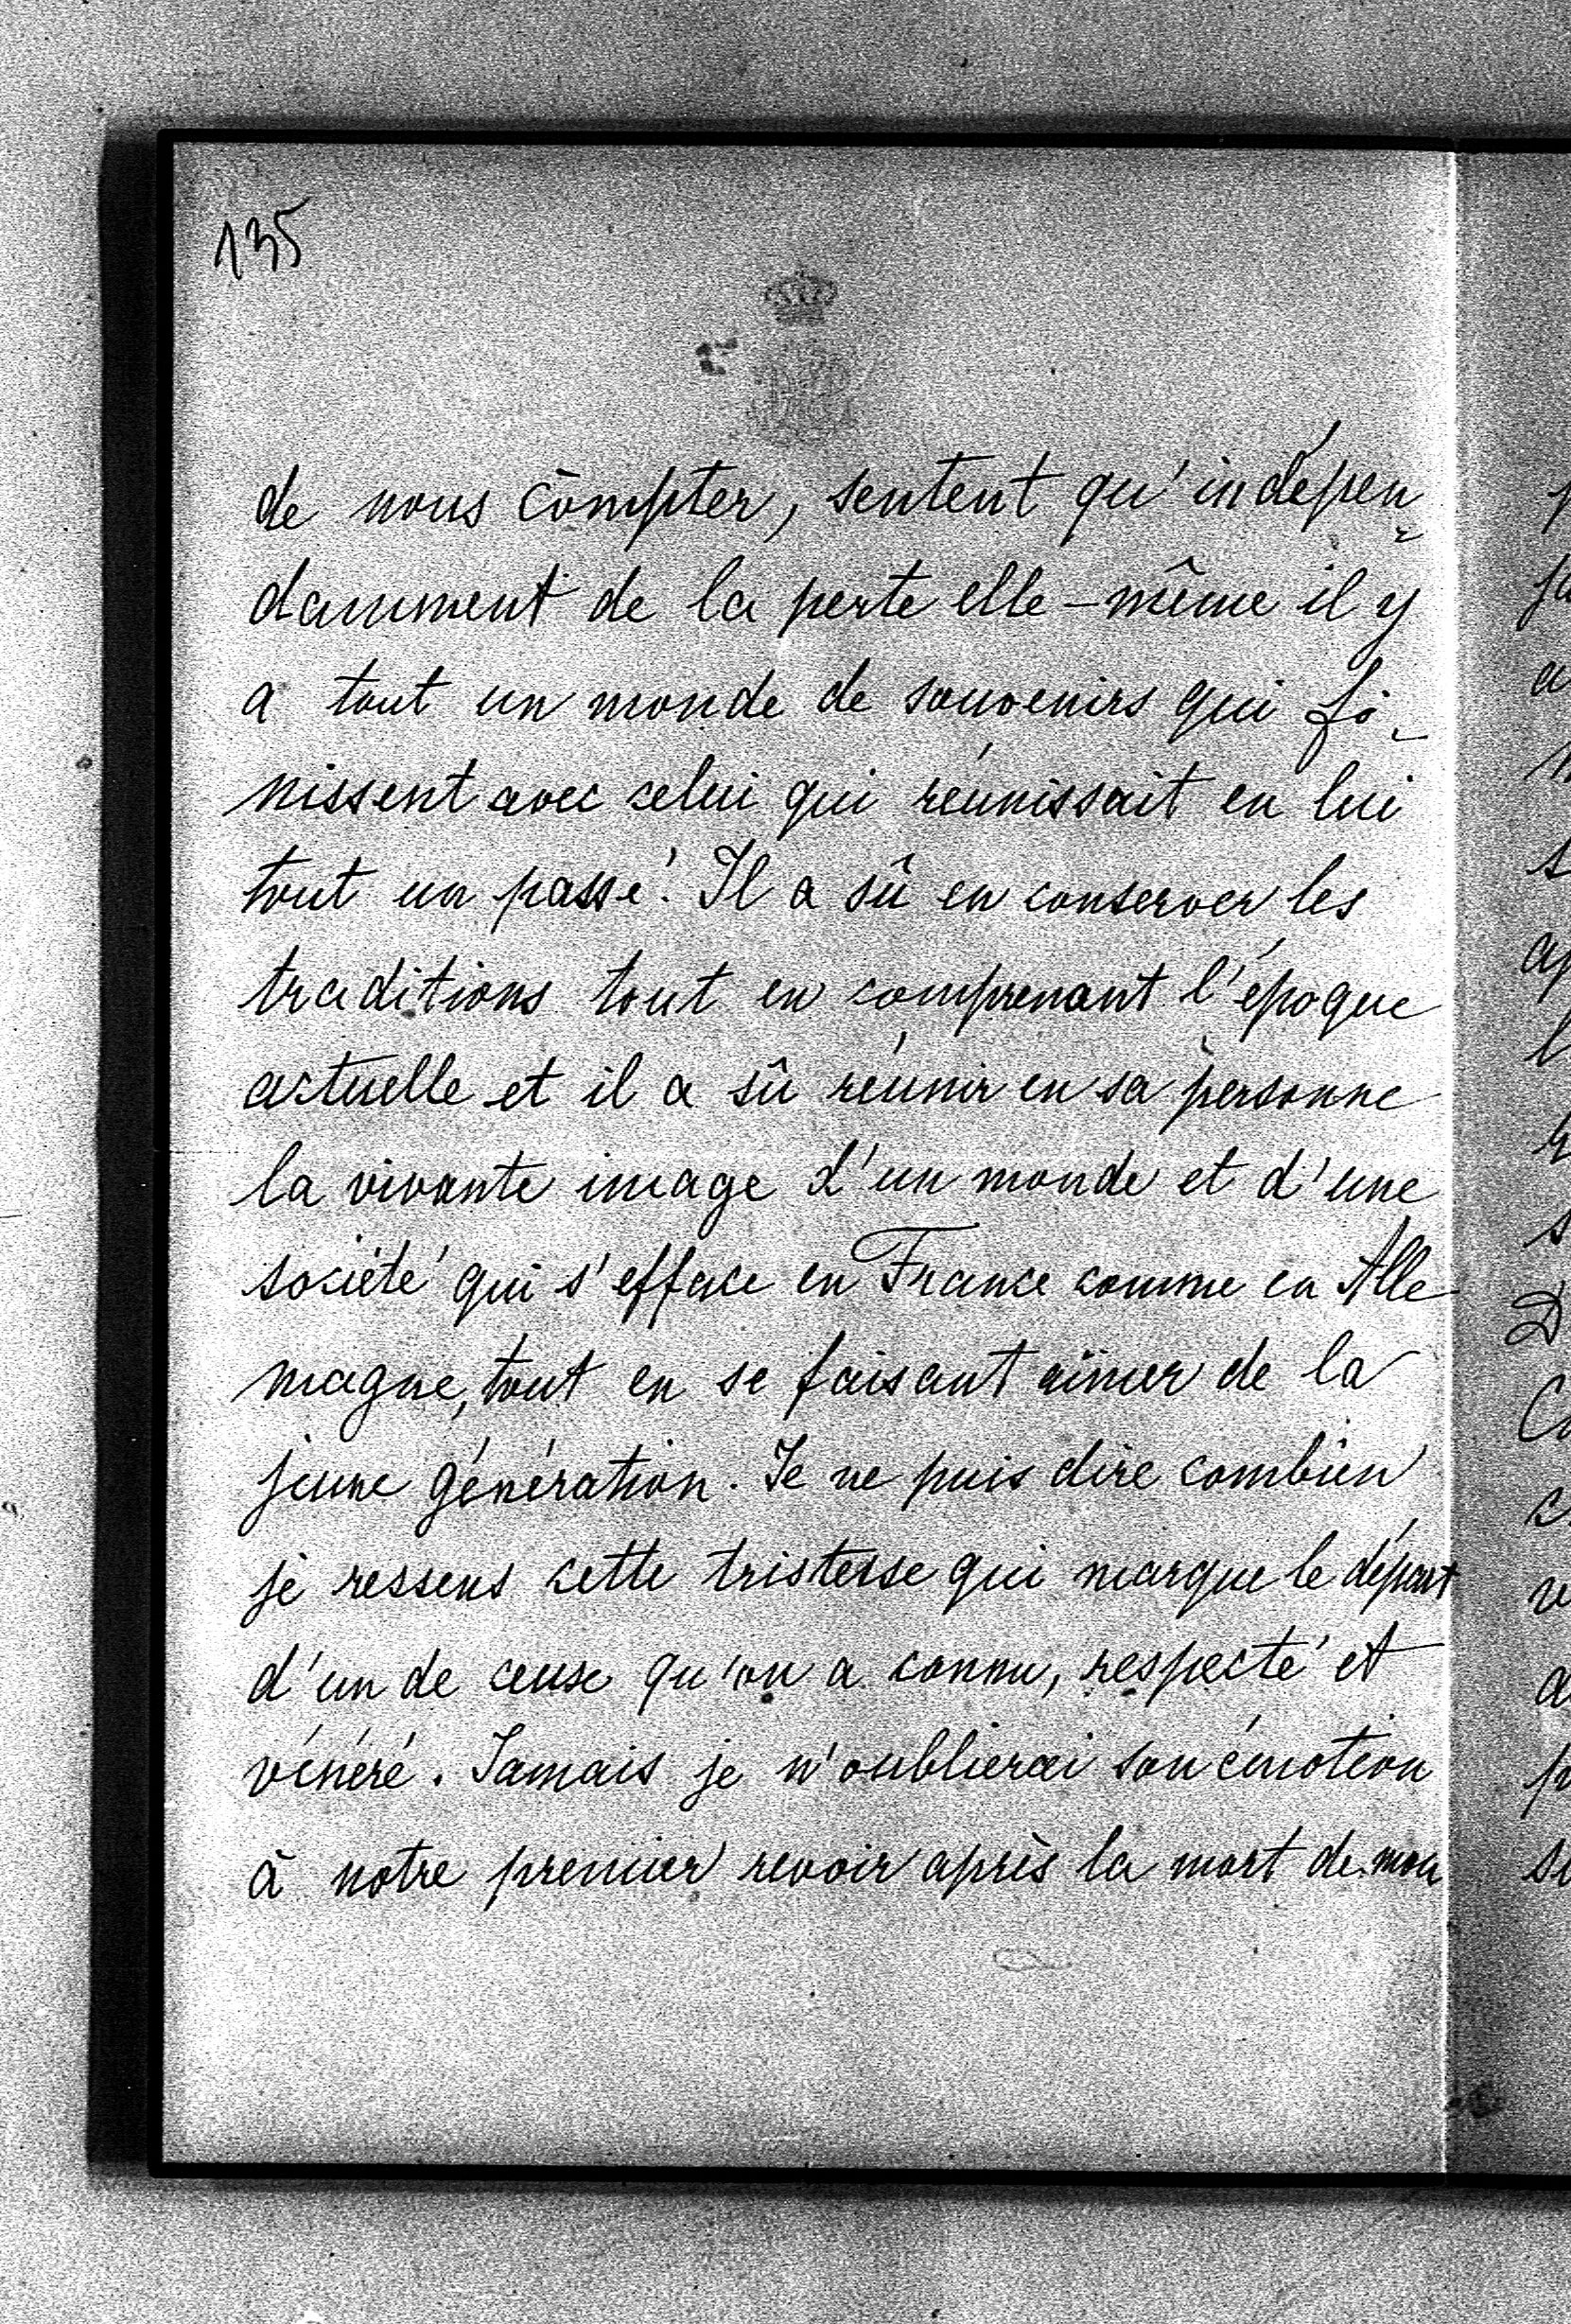 135
de nous compter, sentent qu'indépen
damment de la perte elle-même il y
a tout un monde de souvenirs qui fi-
nissent avec celui qui réunissait en lui
tout un passé. Il a sû en conserver les
traditions tout en comprenant l'époque
actuelle et il a sû réunir en sa personne
la vivante image d'un monde et d'une
société qui s'efface en France comme en Alle
magne, tout en se faisant aimer de la
jeune génération. Je ne puis dire combien
je ressens cette tristesse qui marque le départ
d'un de ceux qu'on a connu, respecté et
vénéré. Jamais je n'oublierai son émotion
à notre premier revoir après la mort de mon